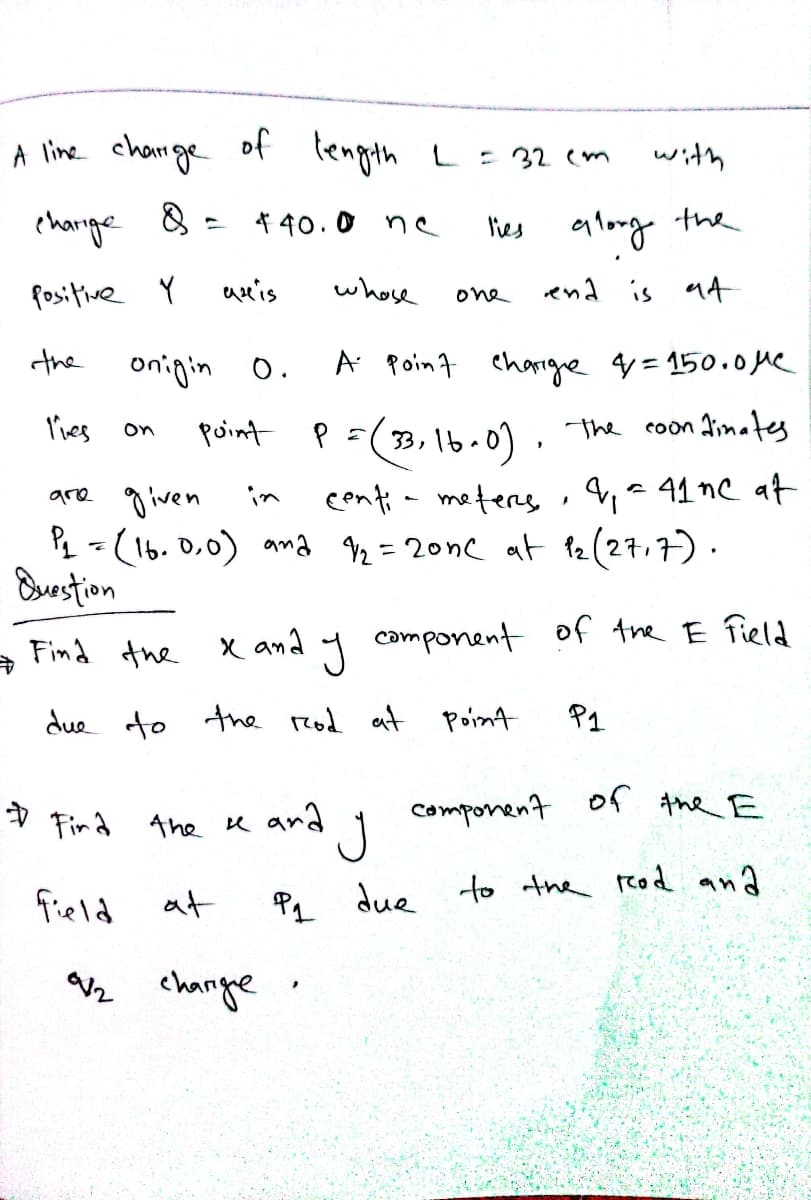 A line charge of length L = 32 cm with
charge Q = +40.0 nc lies along the
positive Y axis whose one end is at
the origin O. A point charge q = 150.0 μc
lies on point P = (33, 16.0), The coordinates
are given in centi-meters, q₁ = 41 nC at
P₁ = (16.0,0) and q₂ = 20nC at P₂ (27,7).
Question
⇒ Find the x and y component of the E field
due to the rod at point P1
⇒ Find the x and y component of the E
field at P₁ due to the rod and
q₂ charge.